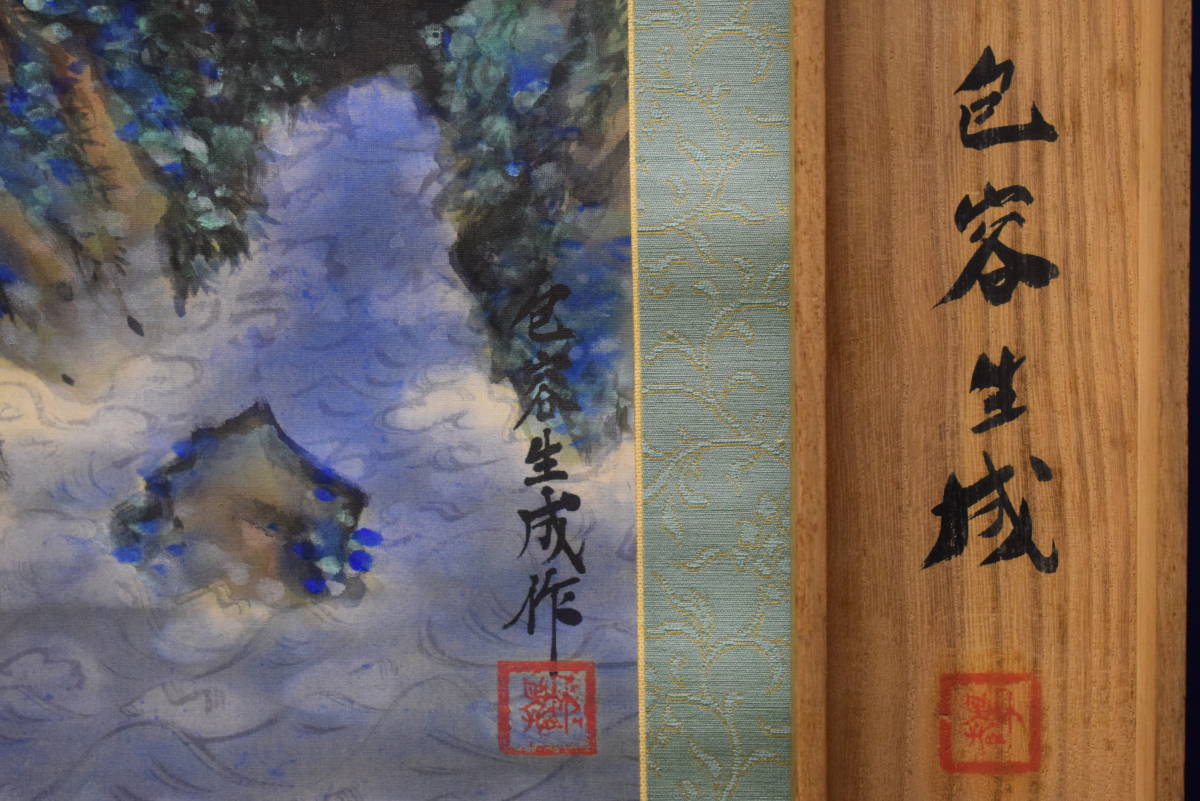 包容生成作
包容生成